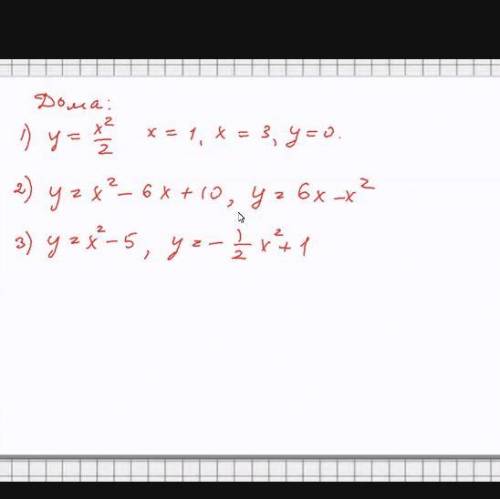 Дома:
1) y = x²/2 x = 1, x = 3, y = 0.
2) y = x² - 6x + 10, y = 6x - x²
3) y = x² - 5, y = - 1/2 x² + 1